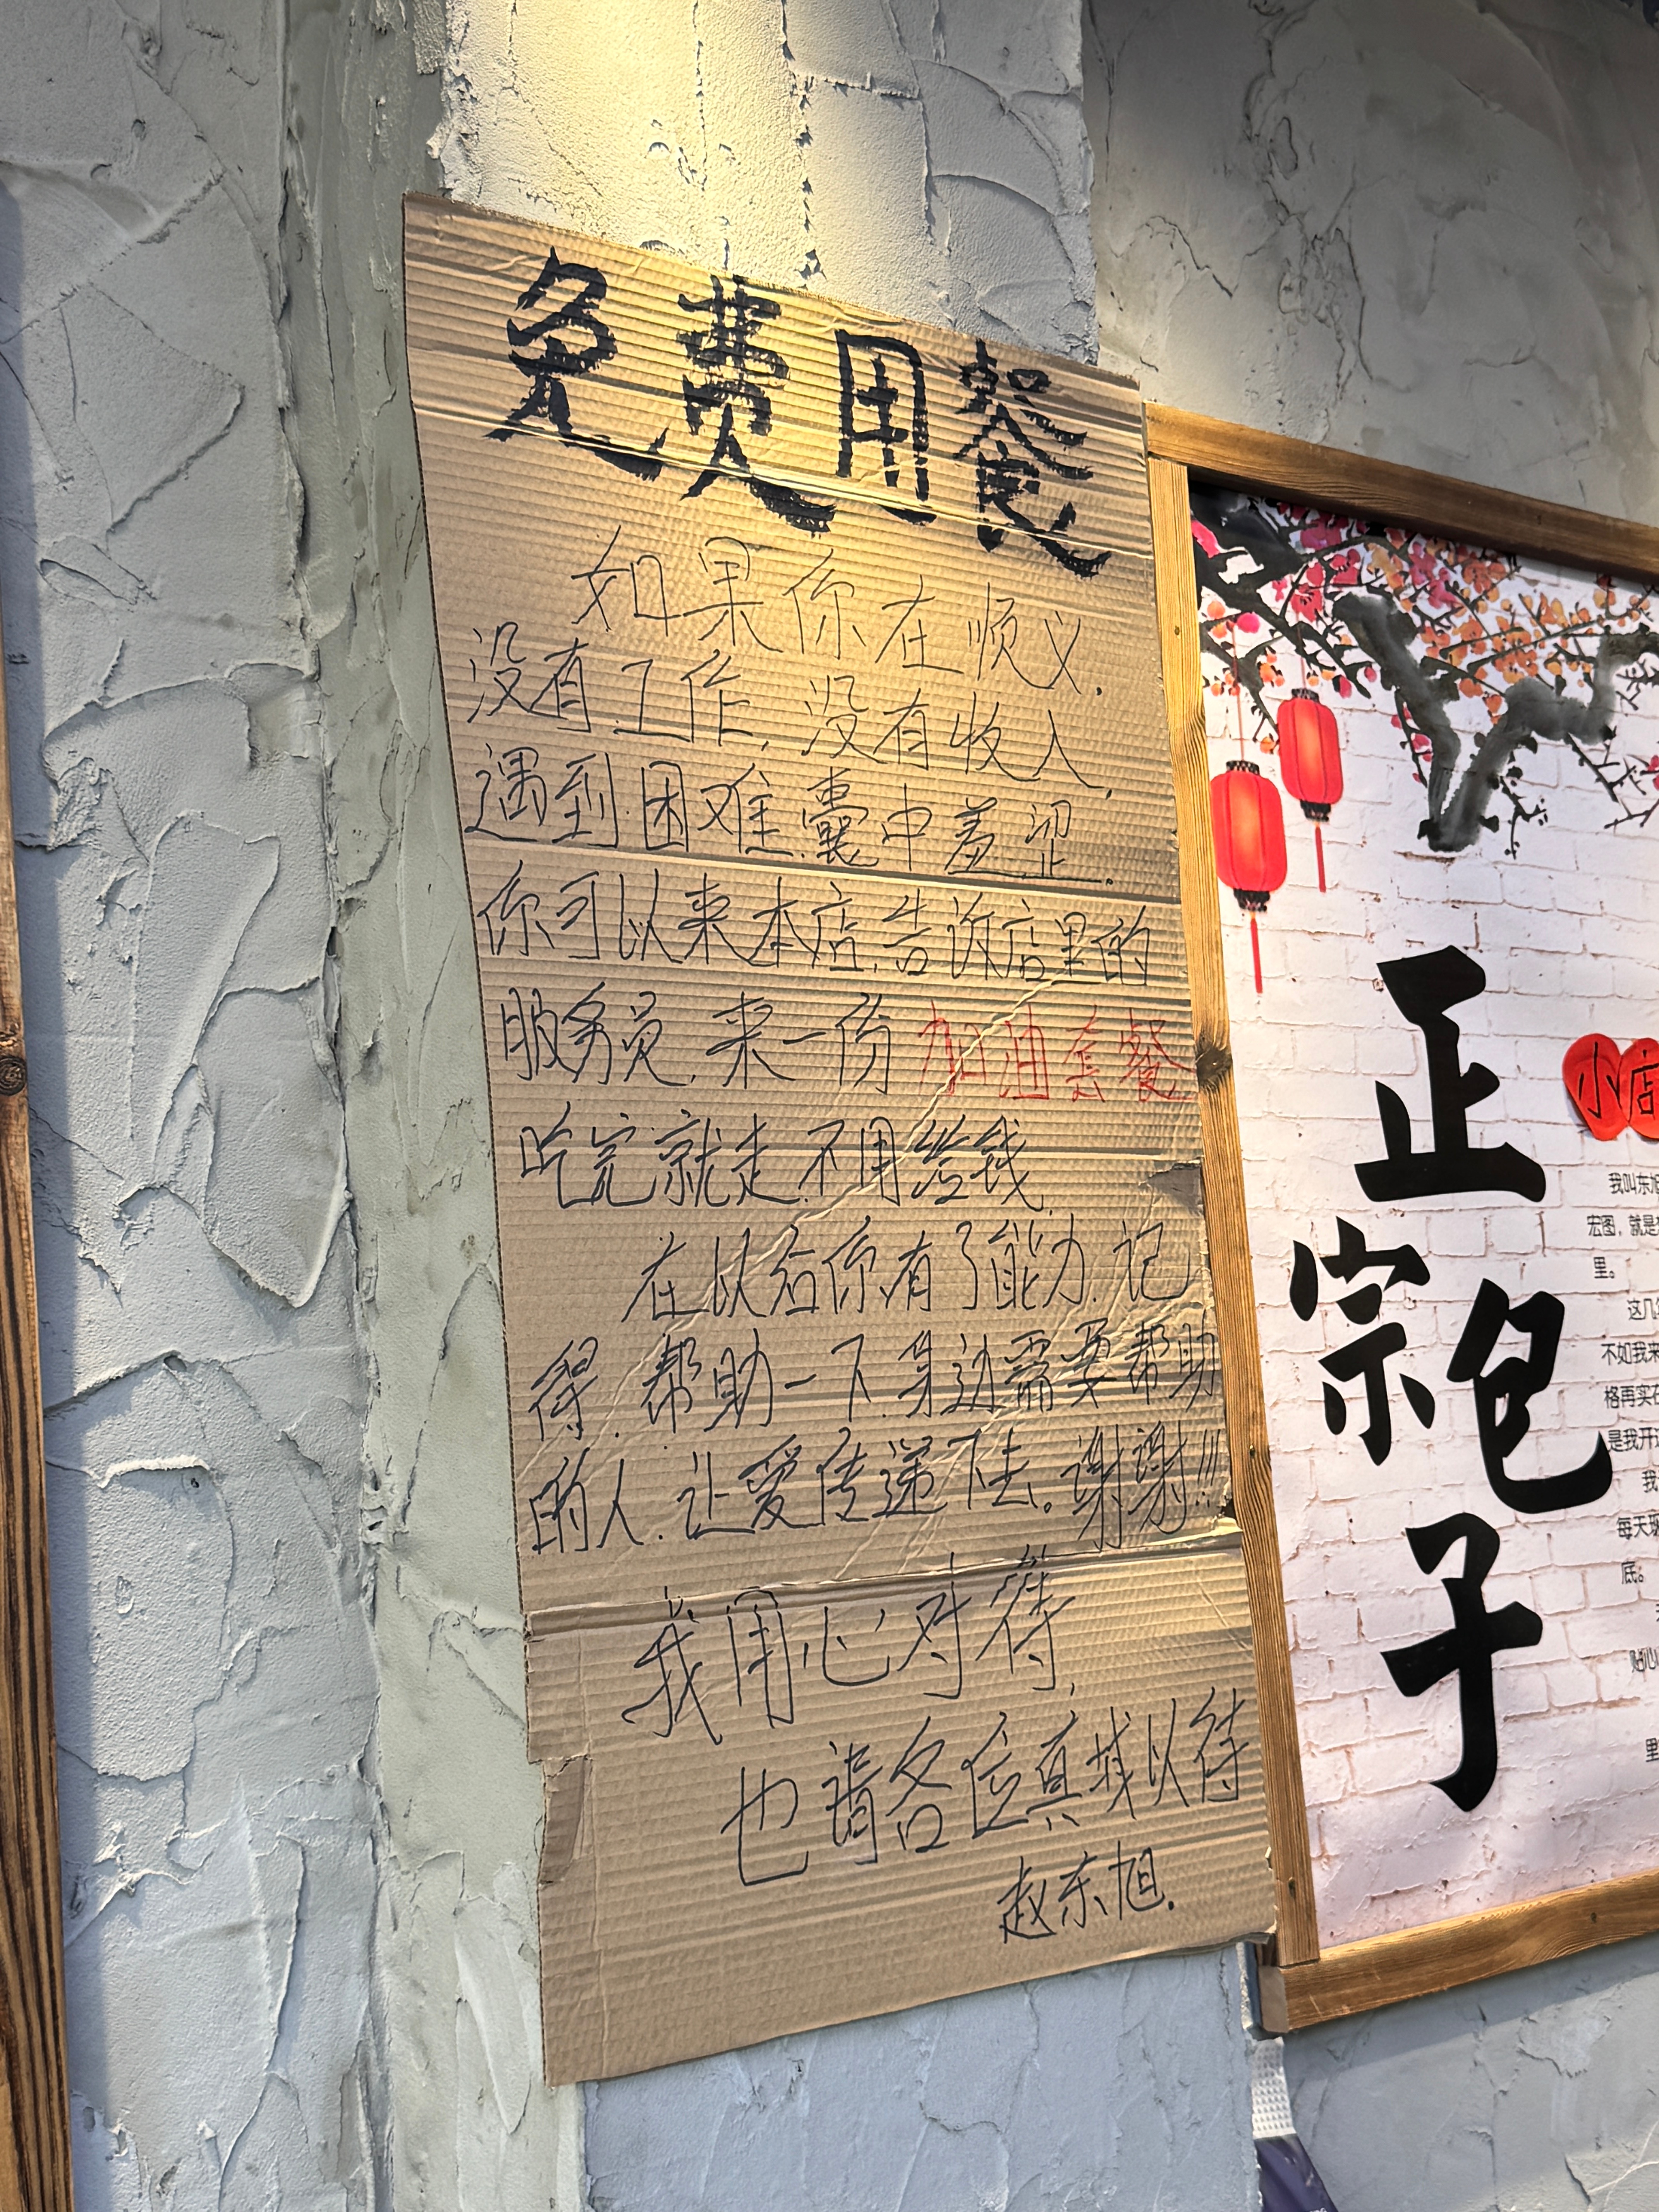 免费用餐
如果你在顺义,
没有工作,没有收入,
遇到困难,囊中羞涩,
你可以来本店,告诉店里的
服务员,来一份 加油套餐
吃完就走,不用给钱,
在以后你有了能力,记
得,帮助一下,身边需要帮助
的人,让爱传递下去。谢谢!!!
我用心对待,
也请各位真城以待
赵东旭.
正宗包子
小店
我叫东旭
宏图,就是
里。
这几
不如我来
格再实在
是我开
我
每天
底。
贴心
里